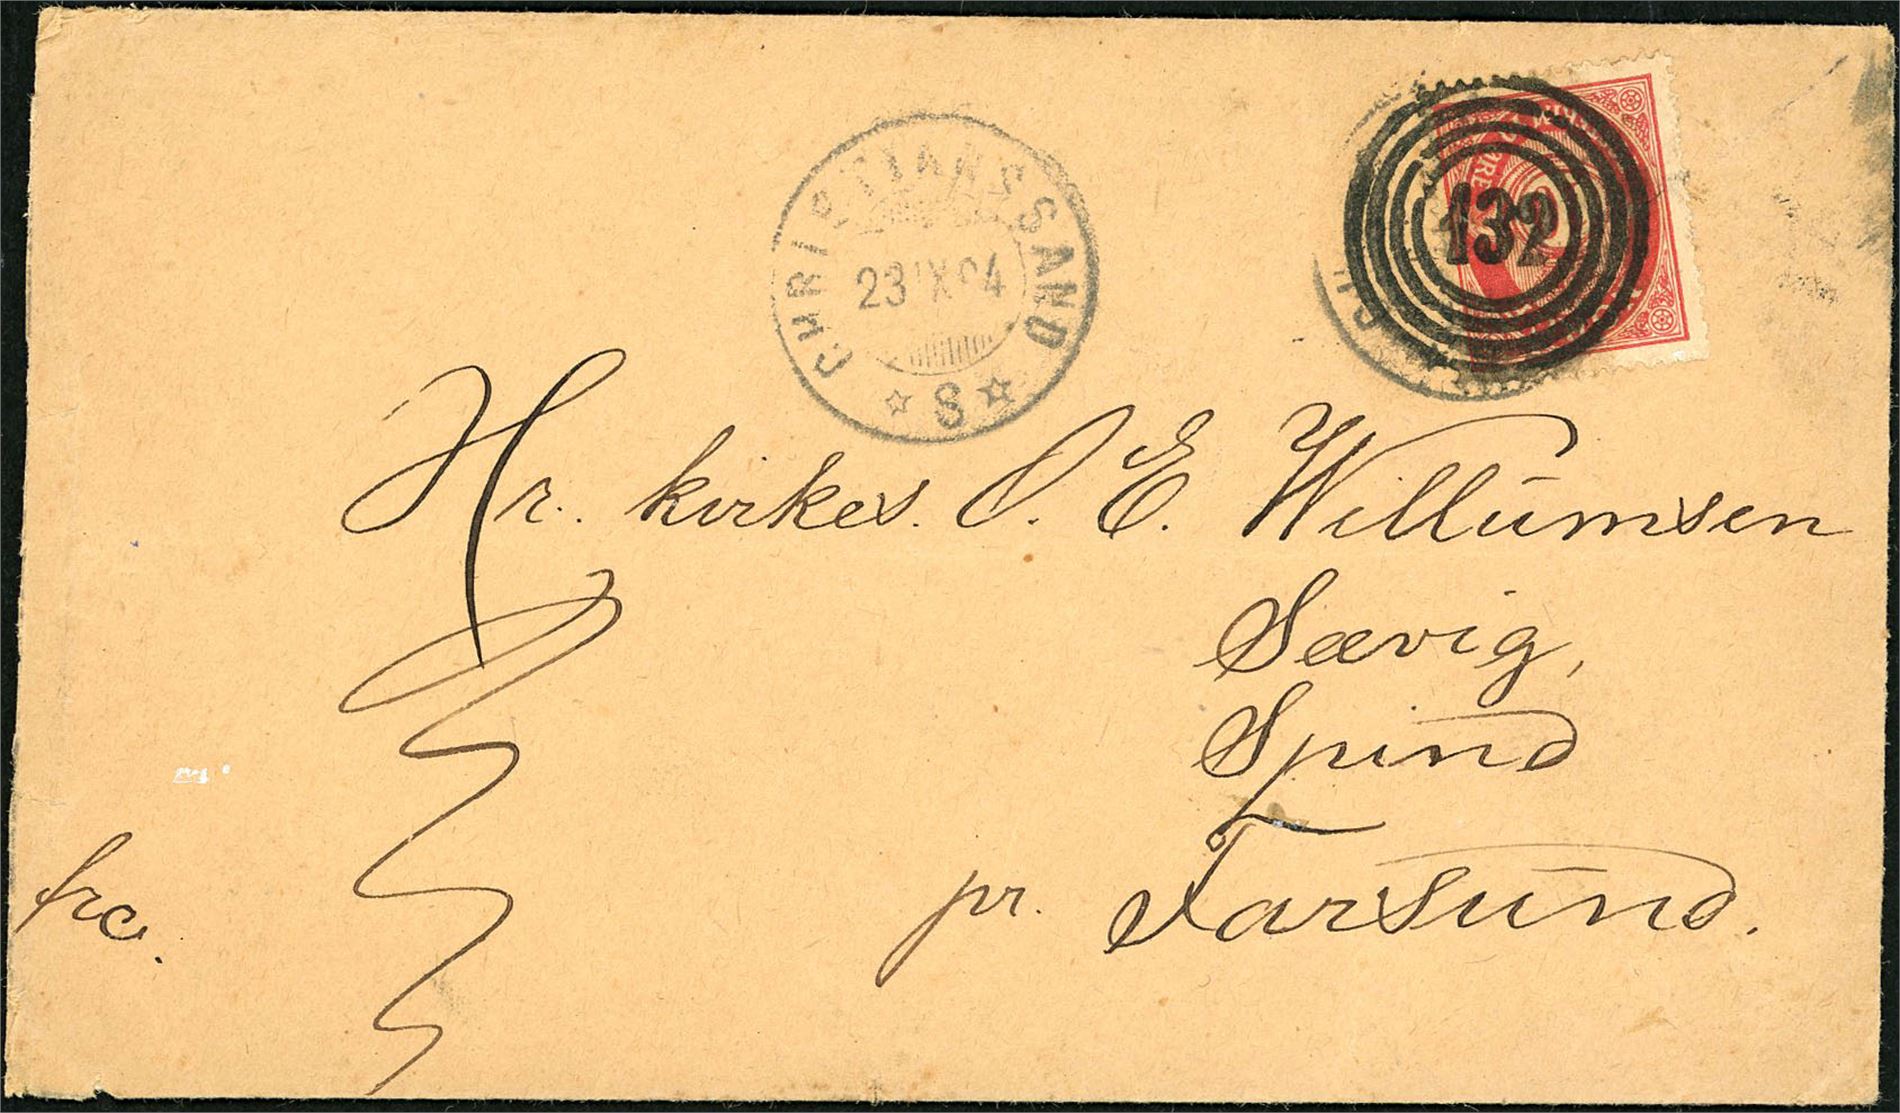 CHRISTIANSSAND
23 IX 94
S
132
Hr. kirkes. O. E. Willumsen
Sævig,
Spind
pr. Farsund.
frc.